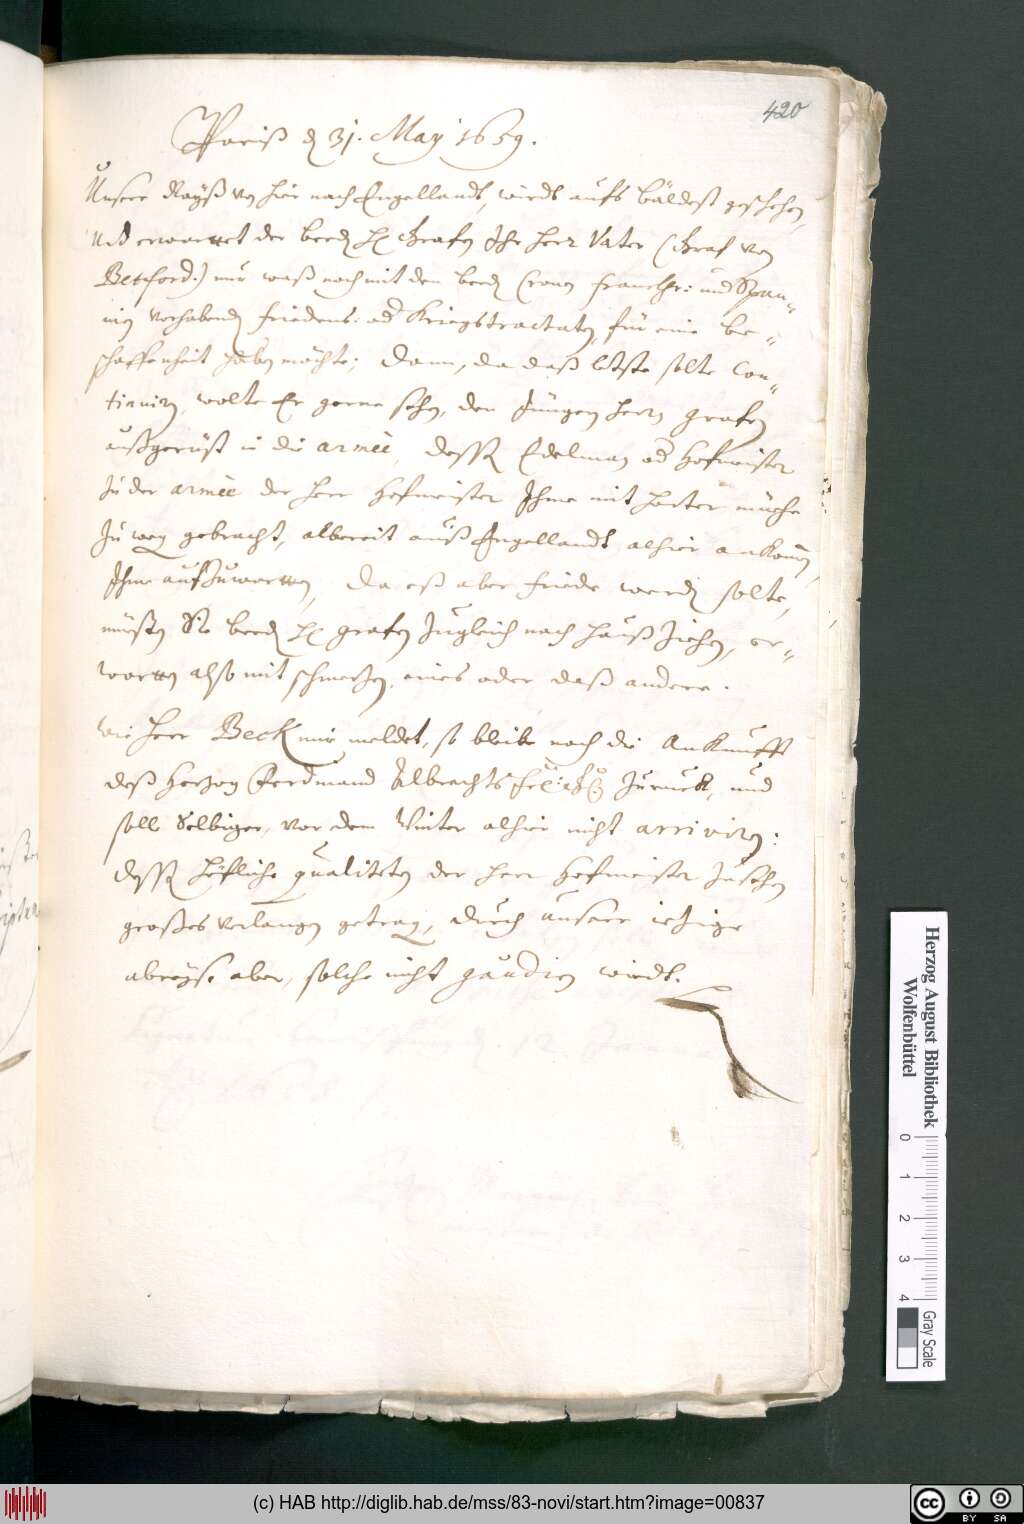 420
Pariß d 31. May 1659.
Unsere Rayß von hier nach Engellandt, wirdt aufs bäldest geschehen,
Und erwarttet der beeden H. Grafen Ihr Herr Vater (Graf von
Bettford:) nur waß noch mit den beeden Cronen Franckhr: und Span-
nien vorhabenden Friedens: od Kriegstractaten, für eine be-
schaffenheit haben möchte; Dann, da daß letste solte con-
tinuiren, wolte Er gerne sehen, den Jüngern Herrn Grafen
außgerüst in die armée, dessen Edelman od Hofmeister
Zu der armée der Herr Hofmeister Ihme mit harter mühe
Zu weg gebracht, albereit auß Engellandt alhier ankommen,
Ihme aufZuwartten, Da eß aber Friede werden solte,
müsten Sie beede H. Grafen Zugleich nach Hauß Ziehen, er-
wartten also mit schmerzen, eines oder daß andere.
Wie Herr Beck mir meldet, so bleibe noch die Ankunfft
deß Herzog Ferdinand Albrechts Zuruck, und
solle Selbiger, vor dem Winter alhier nicht arriviren:
Dessen höfliche qualiteten der Herr Hofmeister Zusehen
großes verlangen getragen, durch unsere ietzige
abreyse aber, solche nicht gaudiren wirdt.
Herzog August Bibliothek
Wolfenbüttel
0 1 2 3 4
Gray Scale
(c) HAB http://diglib.hab.de/mss/83-novi/start.htm?image=00837
cc BY SA